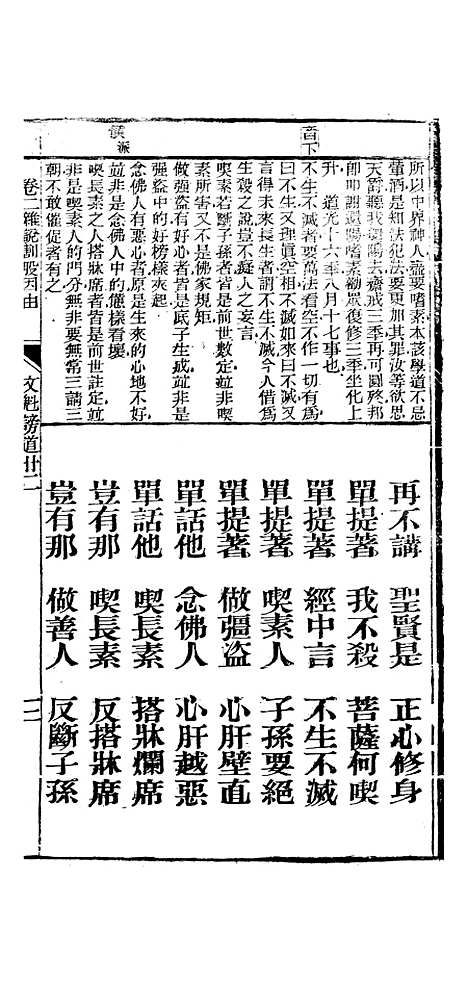 音下
派
所以中界神人盡要嗜素本該學道不忌
葷酒是知法犯法要更加其罪汝等欲思
天爵聽我還陽去齋戒三季再可圓終邦
帥叩謝還陽嗜素勸眾復修三季坐化上
升 道光十六年八月十七事也
不生不滅者要萬法看空不作一切有為
曰不生又理眞空相不滅如來曰不生不滅
言得未來長生者謂不生不滅今人借為
生殺之說豈不癡人之妄言
喫素若斷子孫者皆是前世數定竝非喫
素所害又不是佛家規矩
做强盗有好心者皆是底子生成竝非是
强盗中的好榜樣夾起
念佛人有惡心者原是生來的心地不好
竝非是念佛人中的傲樣看壞
喫長素之人搭牀席者皆是前世註定竝
非是喫素人的門分無非要無常三請三
朝不敢催促者有之
再不講 聖賢是 正心修身
單提著 我不殺 菩薩何喫
單提著 經中言 不生不滅
單提著 喫素人 子孫要絕
單提著 做彊盗 心肝壁直
單話他 念佛人 心肝越惡
單話他 喫長素 搭牀爛席
豈有那 喫長素 反搭牀席
豈有那 做善人 反斷子孫
卷二雜說訓設因由
文魁篣道廿二
三